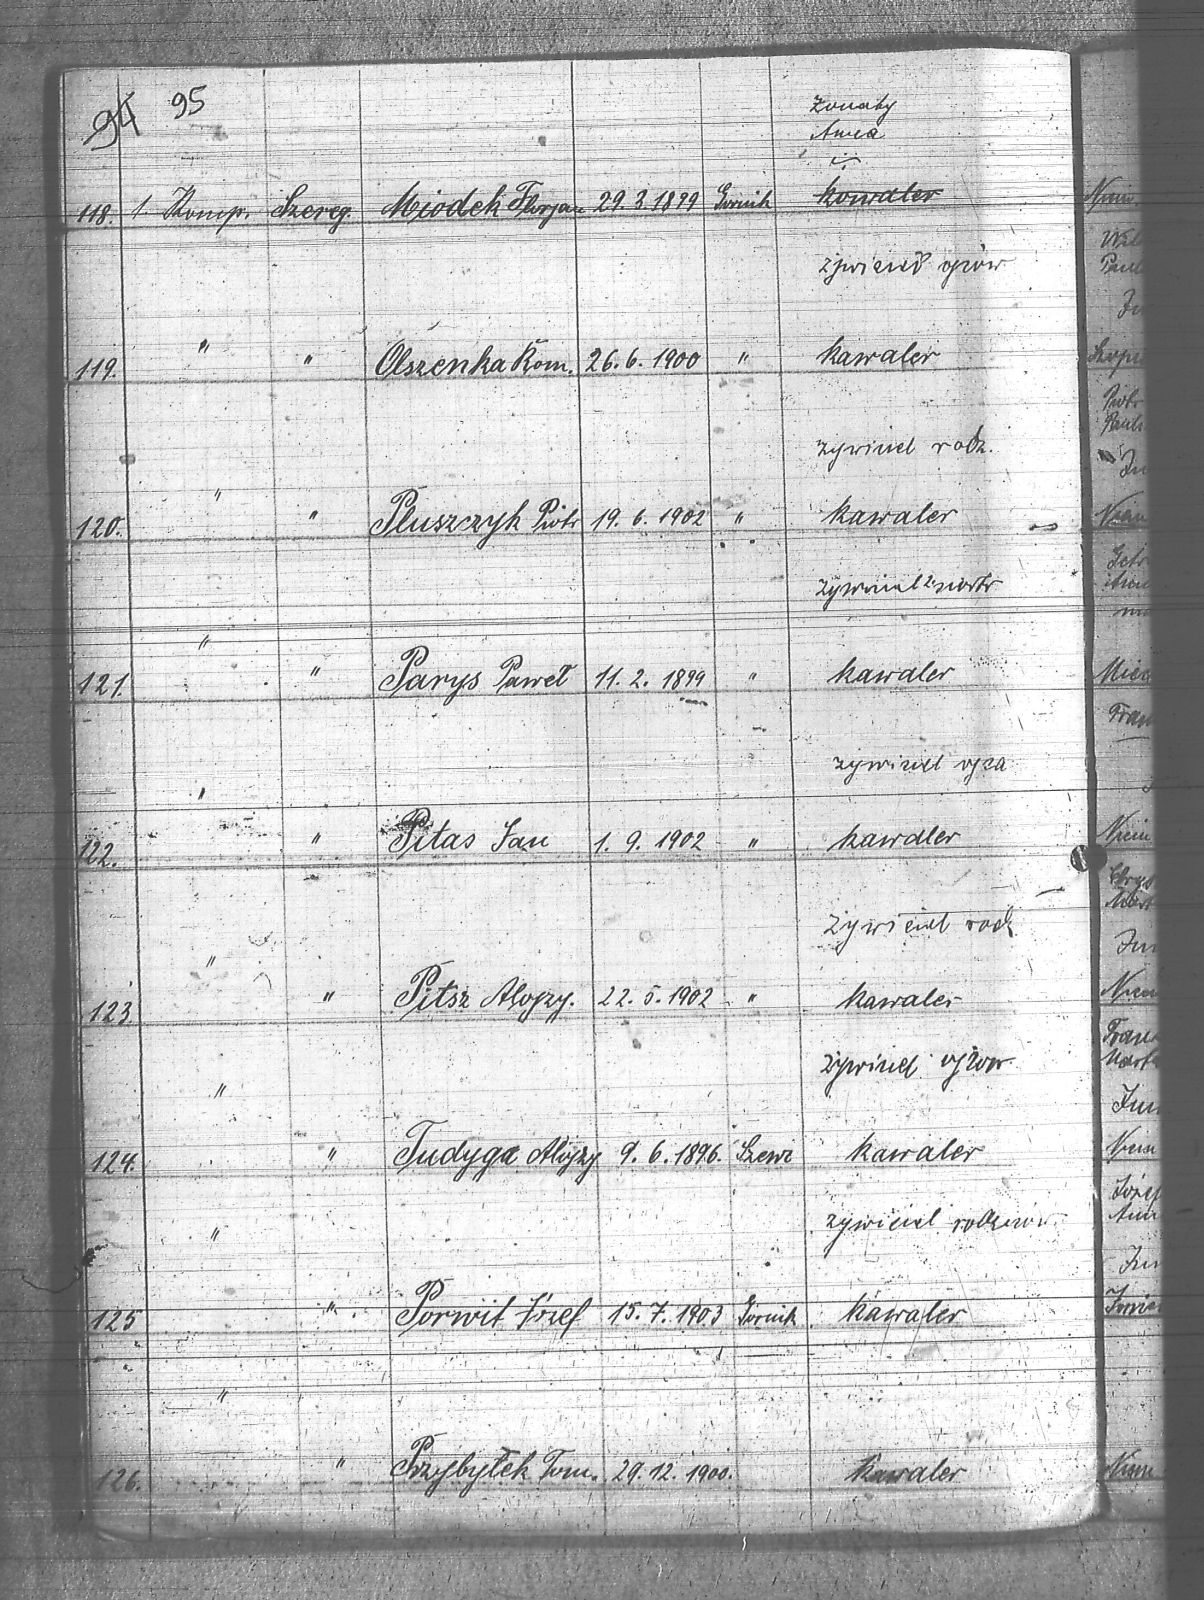 94 95
żonaty
Anna
118. 1 Komp. Szereg. Miodek Florjan 29.3.1899 Gornik kawaler
żywiciel
119. " " Olszenka Rom. 26.6.1900 " kawaler
żywiciel rodz.
120. " " Pluszczyk Piotr 19.6.1902 " kawaler
żywiciel
121. " " Parys Paweł 11.2.1899 " kawaler
żywiciel ojca
122. " " Pitas Jan 1.9.1902 " kawaler
żywiciel rodz.
123. " " Pitsz Alojzy. 22.5.1902 " kawaler
żywiciel
124. " " Tudyga Alojzy 9.6.1896. Szewc kawaler
żywiciel
125 " " Porwit Józef 15.7.1903 Gornik kawaler
126. " " Przybyłek Tom. 29.12.1900. kawaler